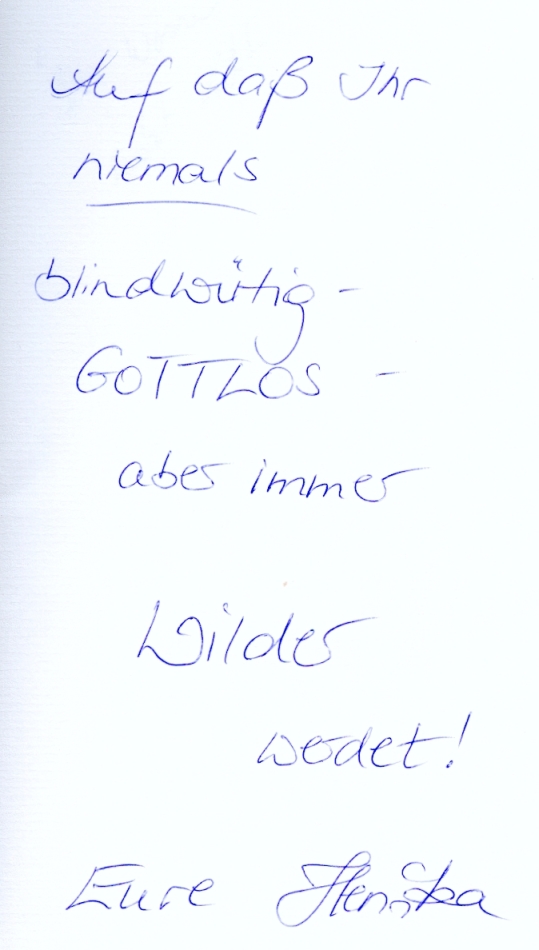 Auf daß Ihr
niemals
blindwütig -
GOTTLOS -
aber immer
Wilder
werdet!
Eure